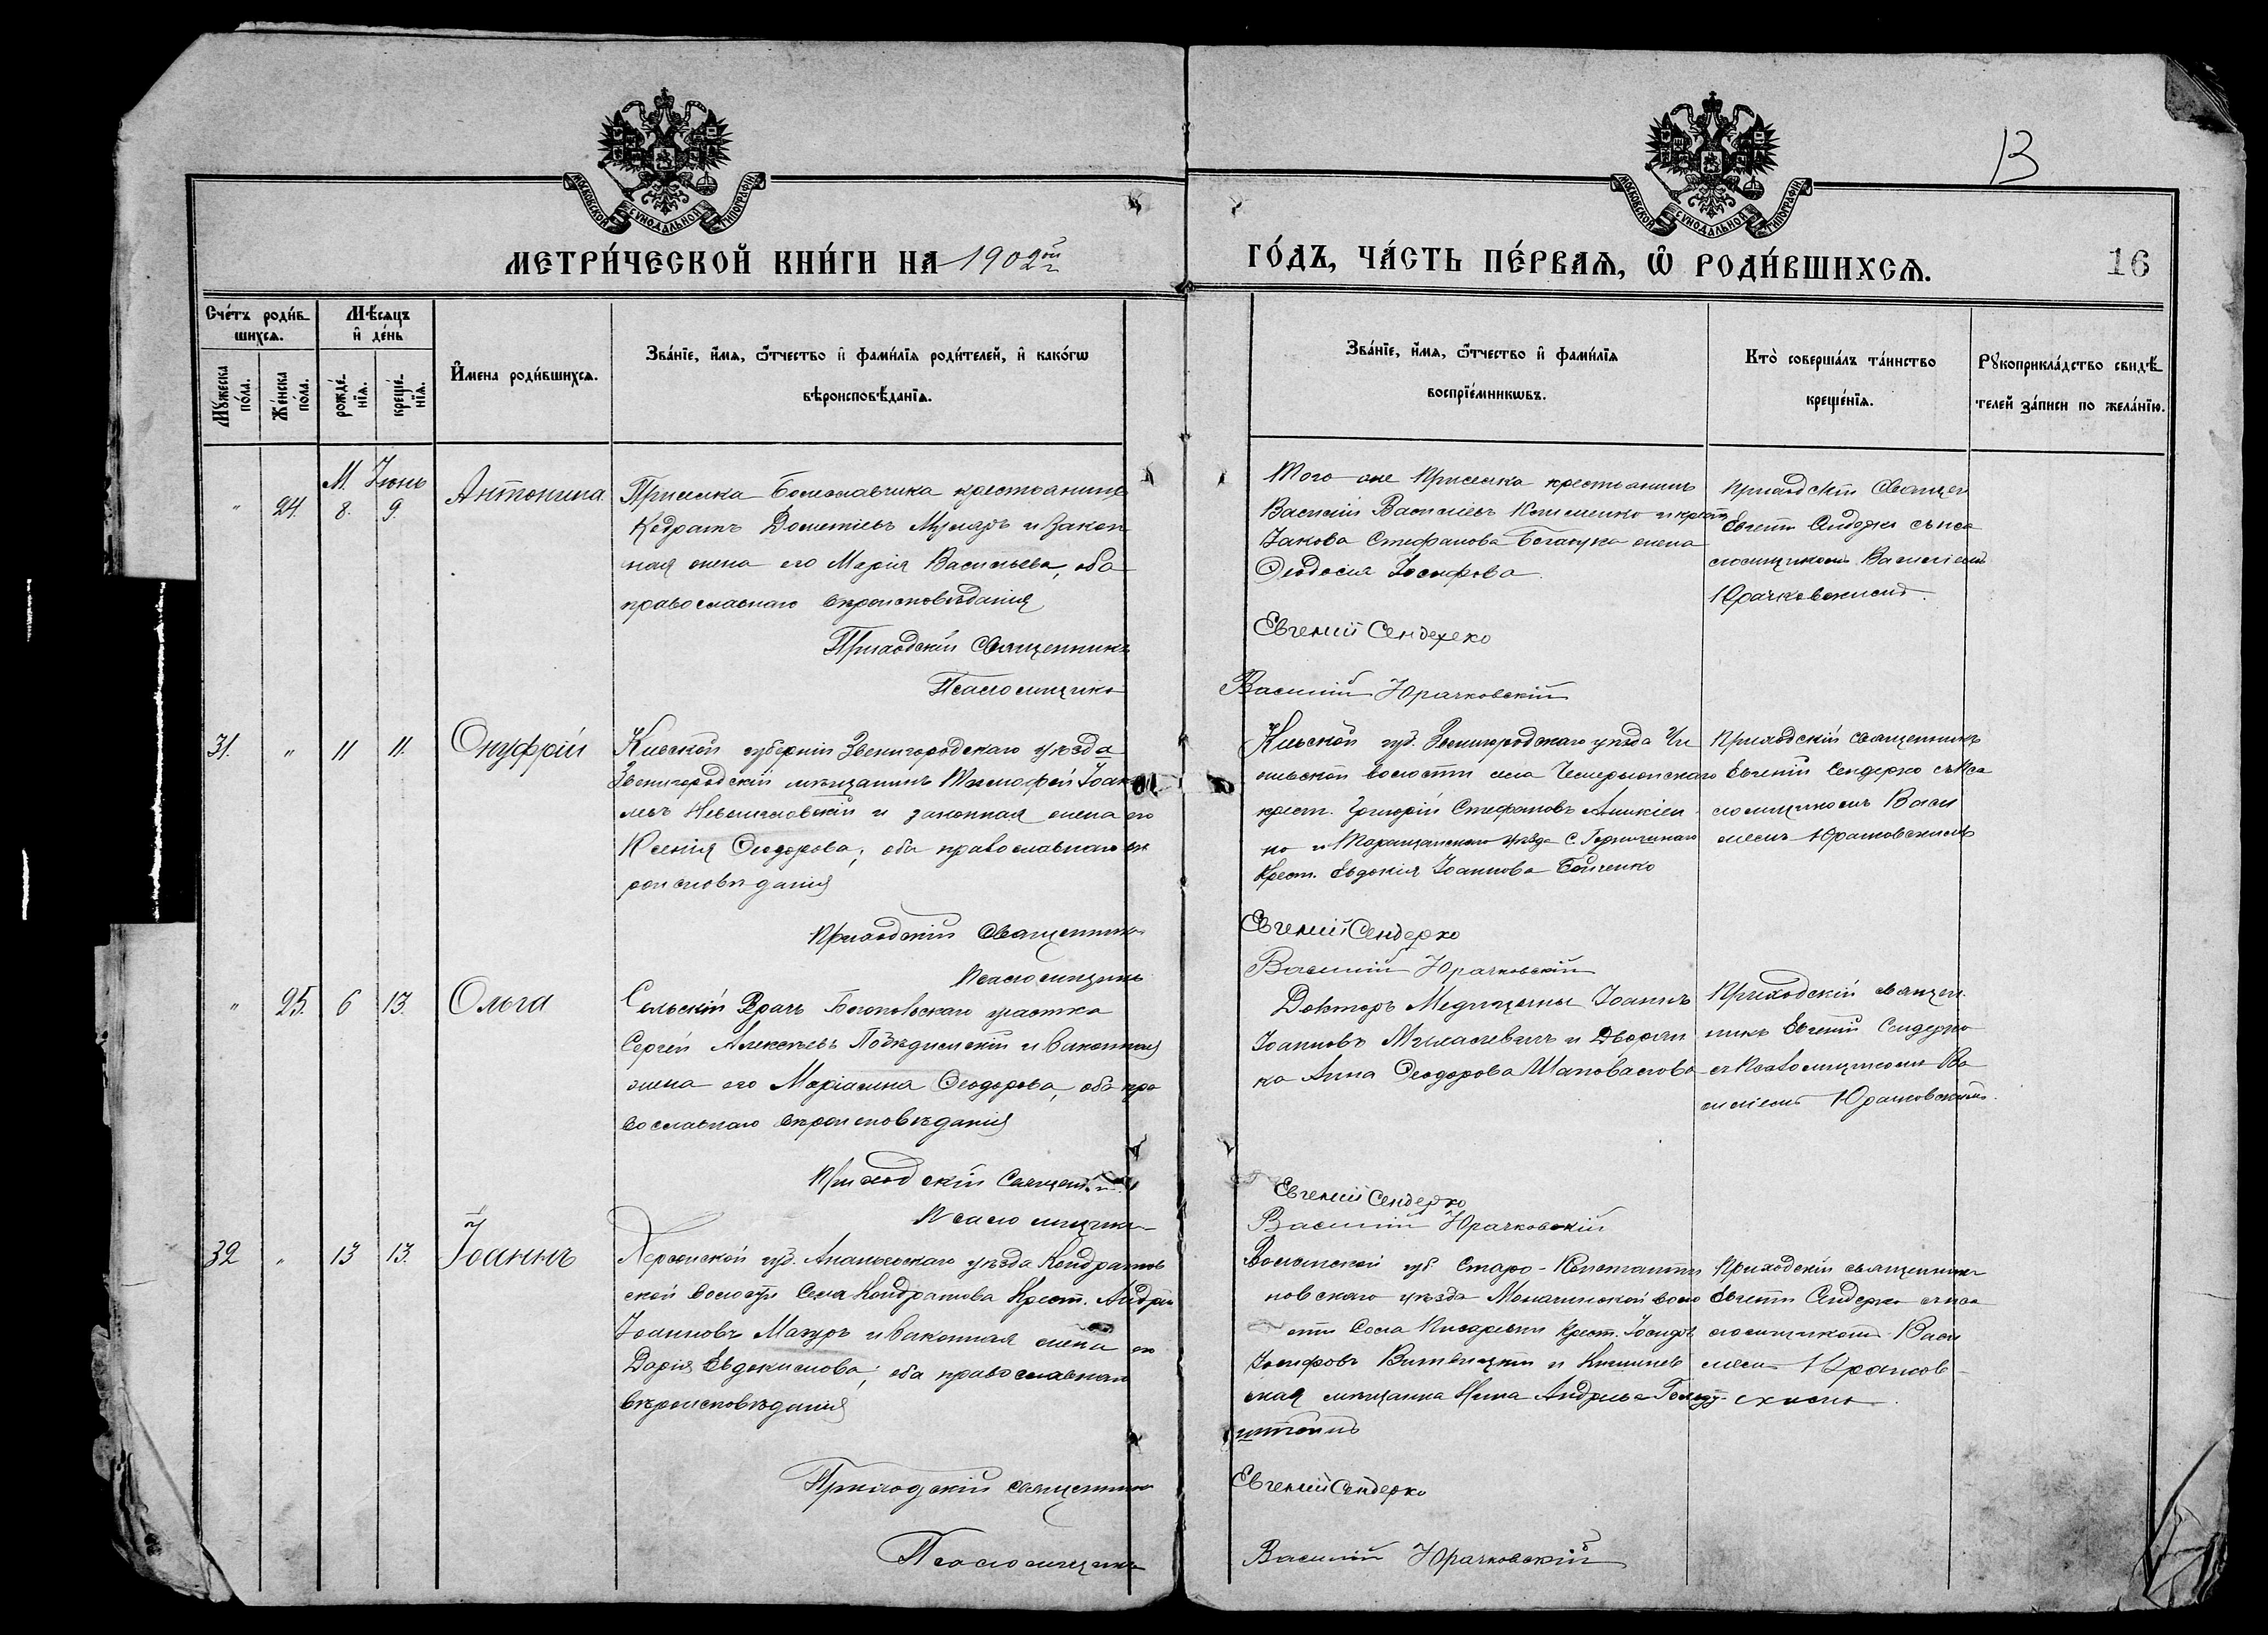 13
МОСКОВСКОЙ СѴНОДАЛЬНОЙ ТИПОГРАФІИ
МОСКОВСКОЙ СѴНОДАЛЬНОЙ ТИПОГРАФІИ
МЕТРИ́ЧЕСКОЙ КНИ́ГИ НА 1902ой
ГО́ДЪ, ЧА́СТЬ ПЕ́РВАѦ, Ѽ РОДИ́ВШИХСѦ.
16
Сче́тъ роди́в-
шихсѧ.
Мѣ́сѧцъ
и҆ де́нь
Мꙋ́жеска по́ла.
Же́нска по́ла.
рожде́-нїѧ.
креще́-нїѧ.
И҆́мена роди́вшихсѧ.
Зва́нїе, и҆́мѧ, ѻ҆́тчество и҆ фами́лїѧ роди́телей, и҆ како́гѡ
вѣроисповѣ́данїѧ.
Зва́нїе, и҆́мѧ, ѻ҆́тчество и҆ фами́лїѧ
воспрїе́мникѡвъ.
Кто̀ соверша́лъ та́инство
креще́нїѧ.
Рꙋкоприкла́дство свидѣ́-
телей за́писи по жела́нїю.
М. Іюнь
" 24. 8. 9.
Антонина
Приселка Болеславчика крестьянинъ
Кодратъ Дометіевъ Муларъ и закон
ная жена его Марія Васильева, оба
православнаго вѣроисповѣданія
Приходскій Священникъ
Псаломщикъ
Того же Приселка крестьянинъ
Василій Васильевъ и крест.
Іакова Стефанова жена
Ѳеодосія Іосифова.
Евгеній Сендерко
Василій Юрачковскій
Приходскій Священ
Евгеній Сендерко съ пса
ломщикомъ Василіемъ
Юрачковскимъ.
31. " 11 11.
Онуфрій
Кіевской губерніи Звенигородскаго уѣзда
Звенигородскій мѣщанинъ Тимофей Іоан
новъ и законная жена его
Ксенія Ѳеодорова; оба православнаго вѣ
роисповѣданія
Приходскій Священникъ
Псаломщикъ
Кіевской губ. Звенигородскаго уѣзда
волости села
крест. Григорій Стефановъ Аникіен
ко и Таращанскаго уѣзда с.
Крест. Евдокія Іоаннова Бойченко
Евгеній Сендерко
Василій Юрачковскій
Приходскій священникъ
Евгеній Сендерко съ Пса
ломщикомъ Васи
ліемъ Юрачковскимъ
" 25. 6 13.
Ольга
Сельскій Врачъ участка
Сергей Алексѣевъ и законная
жена его Маріамна Ѳеодорова, оба пра
вославнаго вѣроисповѣданія
Приходскій Священ.
Псаломщикъ
Докторъ Медицины Іоаннъ
Іоанновъ и Дворян
ка Анна Ѳеодорова Шаповалова
Евгеній Сендерко
Василій Юрачковскій
Приходскій священ.
никъ Евгеній Сендерко
съ Псаломщикомъ Ва
силіемъ Юрачковскимъ.
32 " 13 13.
Іоаннъ
Херсонской губ. Ананьевскаго уѣзда Кондратов
ской волости Села Кондратова Крест. Андрей
Іоанновъ Мазуръ и законная жена его
Дарія Евдокимова; оба православнаго
вѣроисповѣданія
Приходскій священникъ
Псаломщикъ
Волынской губ. Старо-Константи
новскаго уѣзда воло
сти Села Писаревки Крест. Іосифъ
Іосифовъ и Кишинев
ская мѣщанка Нина Андреева
Евгеній Сендерко
Василій Юрачковскій
Приходскій священникъ
Евгеній Сендерко съ пса
ломщикомъ Васи
ліемъ Юрачков-
скимъ.